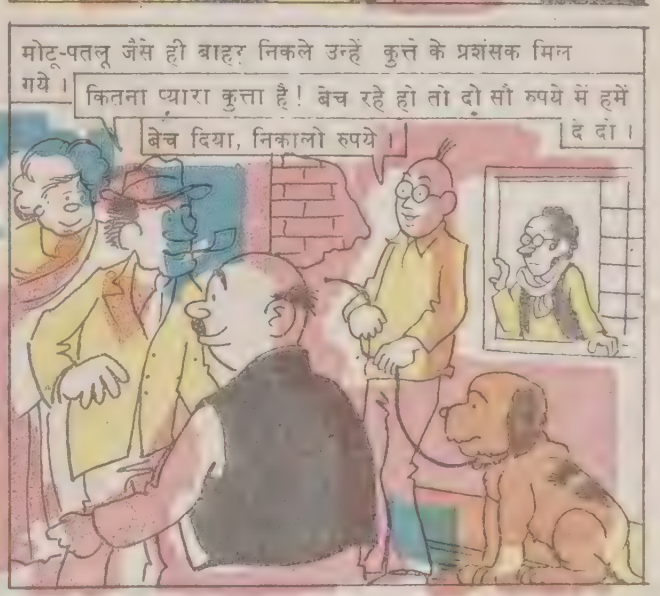 मोटू-पतलू जैसे ही बाहर निकले उन्हें कुत्ते के प्रशंसक मिल
गये ।
कितना प्यारा कुत्ता है ! बेच रहे हो तो दो सौ रुपये में हमें
दे दो ।
बेच दिया, निकालो रुपये ।